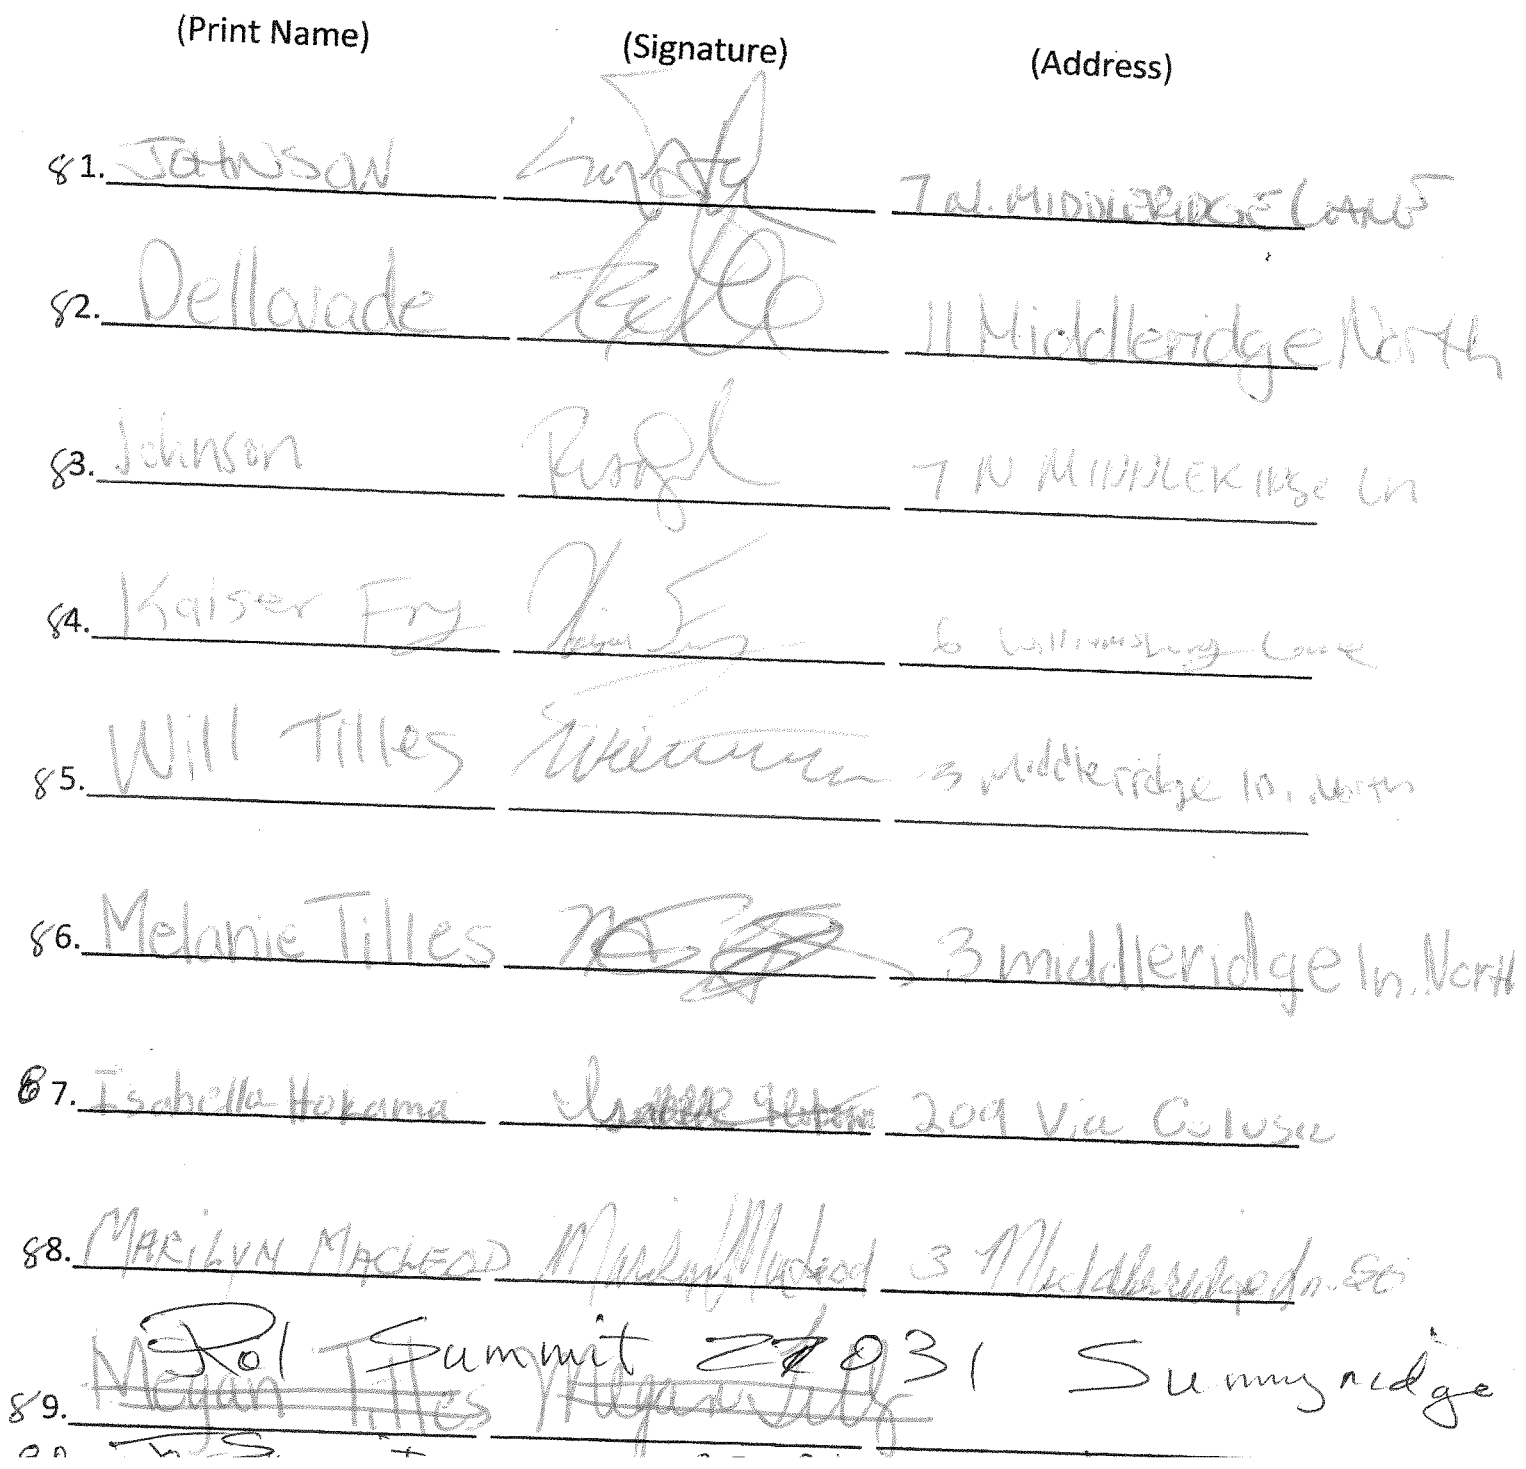 (Print Name) (Signature) (Address)
81. JOHNSON 7 N. MIDDLERIDGE LANE
82. Dellavade 11 Middleridge North
83. Johnson 7 N MIDDLERIDGE Ln
84. Kaiser Fry 6 Williamsburg Lane
85. Will Tilles 3 Middleridge ln. North
86. Melanie Tilles 3 middleridge ln. North
87. Isabella Hokama 209 Via Colusa
88. MARILYN MACLEOD Marilyn MacLeod 3 Middleridge Ln. So
Summit 031 Sunnyridge
89. Megan Tilles Megan Tilles